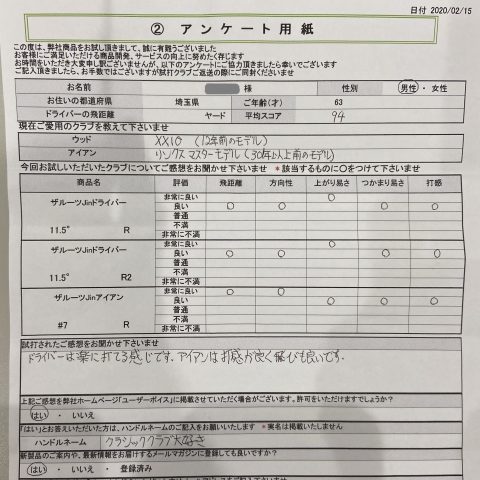 日付 2020/02/15
② アンケート用紙
この度は、弊社商品をお試し頂きまして、誠に有難うございました
お客様にご満足いただける商品開発、サービスの向上に努めたく存じます
お時間をいただき大変申し訳ございませんが、以下のアンケートにご協力頂きましたら幸いでございます
ご記入頂きましたら、お手数ではございますが試打クラブご返送の際にご同封くださいませ
お名前 様 性別 男性・女性
お住いの都道府県 埼玉県 ご年齢(才) 63
ドライバーの飛距離 ヤード 平均スコア 94
現在ご愛用のクラブを教えて下さいませ
ウッド XXIO (12年前のモデル)
アイアン リンクスマスターモデル (30年以上前のモデル)
今回お試しいただいたクラブについてご感想をお聞かせ下さいませ *該当するものに〇をつけて下さいませ
商品名 評価 飛距離 方向性 上がり易さ つかまり易さ 打感
ザルーツJinドライバー
11.5° R
非常に良い 〇
良い 〇 〇 〇 〇
普通
不満
非常に不満
ザルーツJinドライバー
11.5° R2
非常に良い 〇
良い 〇 〇 〇 〇
普通
不満
非常に不満
ザルーツJinアイアン
#7 R
非常に良い 〇 〇
良い 〇 〇 〇
普通
不満
非常に不満
試打されたご感想をお聞かせ下さいませ
ドライバーは楽に打てる感じです。アイアンは打感が良く飛びも良いです。
上記ご感想を弊社ホームページ「ユーザーボイス」に掲載させていただく場合がございます。許可をいただけますでしょうか?
はい ・ いいえ
「はい」とお答えいただいた方は、ハンドルネームのご記入をお願いします *実名は掲載いたしません
ハンドルネーム クラシッククラブ大好き
新製品のご案内や、最新情報をお届けするメールマガジンに登録しても良いですか?
はい ・ いいえ ・ 登録済み